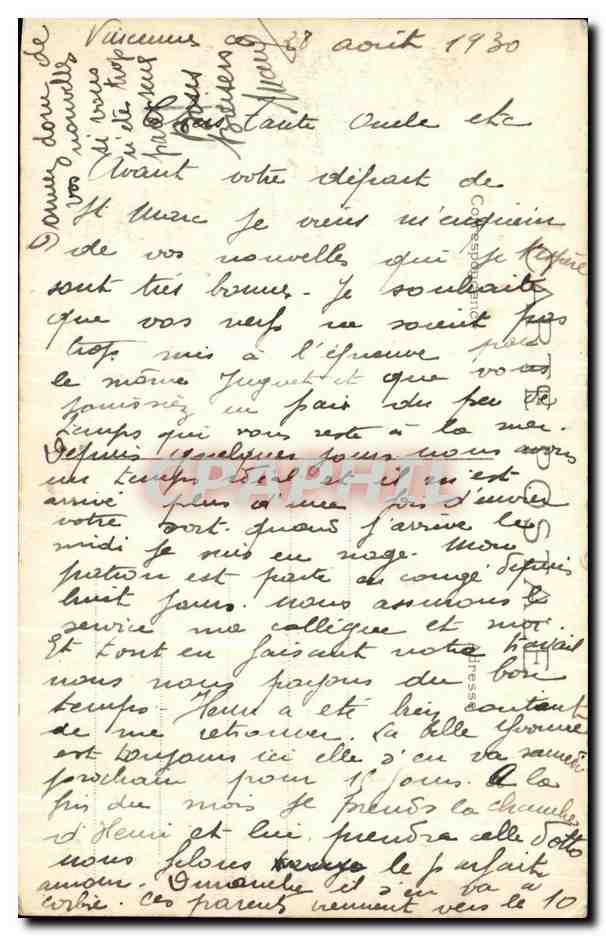 Vincennes le 28 août 1930
Chers Tante Oncle etc
Avant votre départ de
St Marc je viens m'enquérir
de vos nouvelles qui je l'espère
sont très bonnes - Je souhaite
que vos nerfs ne soient pas
trop mis à l'épreuve par
le même et que vous
jouissiez en paix du peu de
temps qui vous reste à la mer.
Depuis quelques jours nous avons
un temps idéal et il m'est
arrivé plus d'une fois d'envier
votre sort. quand j'arrive le
midi je suis en nage. Mon
patron est parti en congé depuis
huit jours. nous assurons le
service ma collègue et moi.
Et tout en faisant notre travail
nous nous payons du bon
temps - Henri a été bien content
de me retrouver. La belle Yvonne
est toujours ici elle s'en va samedi
prochain pour 15 jours. A la
fin du mois je prends la chambre
d'Henri et lui prendra celle d'Otto
nous filons le parfait
amour. Dimanche il s'en va à
Corbie. ces parents viennent vers le 10
Donnez donc de
vos nouvelles
si vous
n'êtes trop
Bons
baisers
CPAPHIL
CARTE POSTALE
Correspondance
Adresse